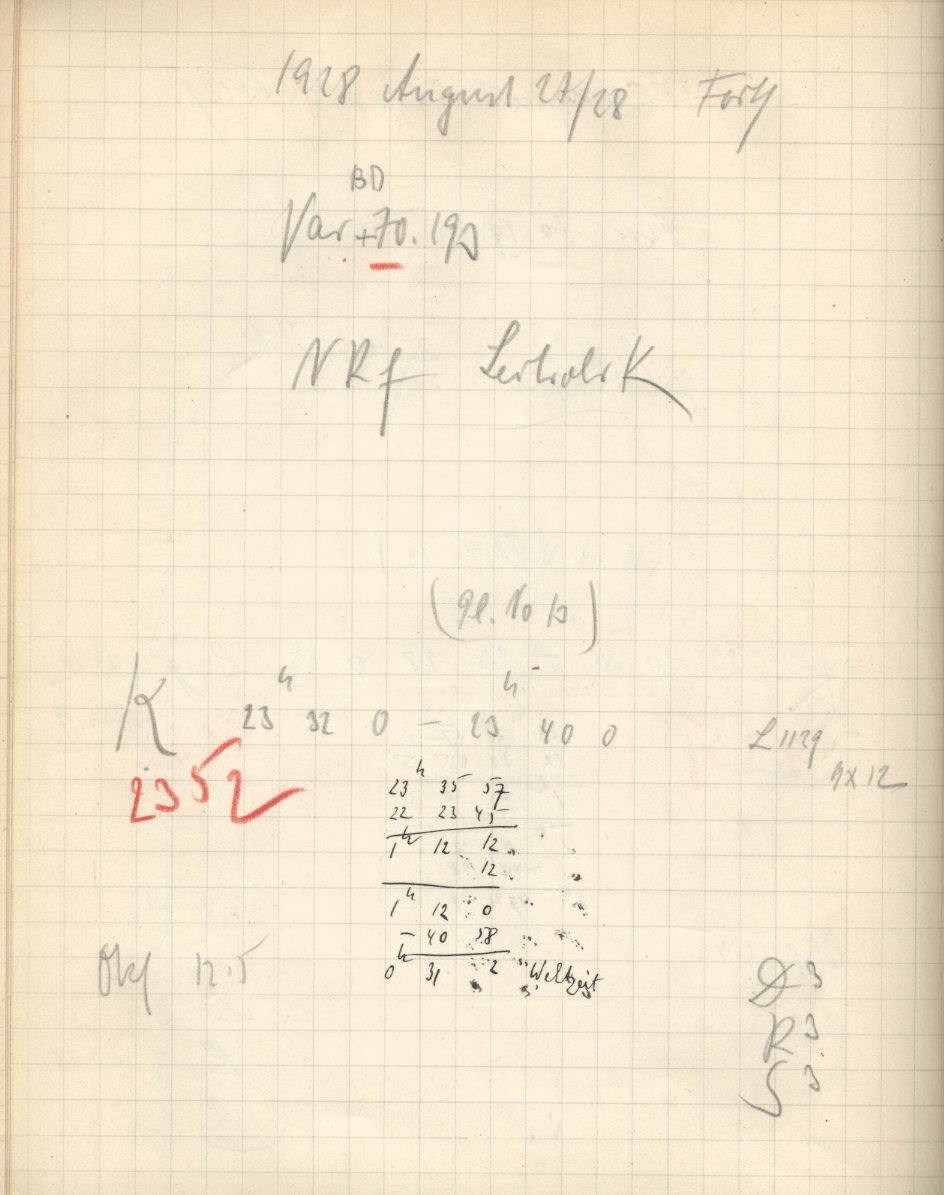 1928 August 27/28 Forts
BD
Var +70.19
NRf Leitrohr K
(gl. No )
K 23h 32 0 – 23h 40 0
L 1129
9x12
2352
23h 35 57
22 23 45
1h 12 12
12
1h 12 0
– 40 58
0h 31 2 Weltzeit
Obj 12.5
D 3
R 3
S 3